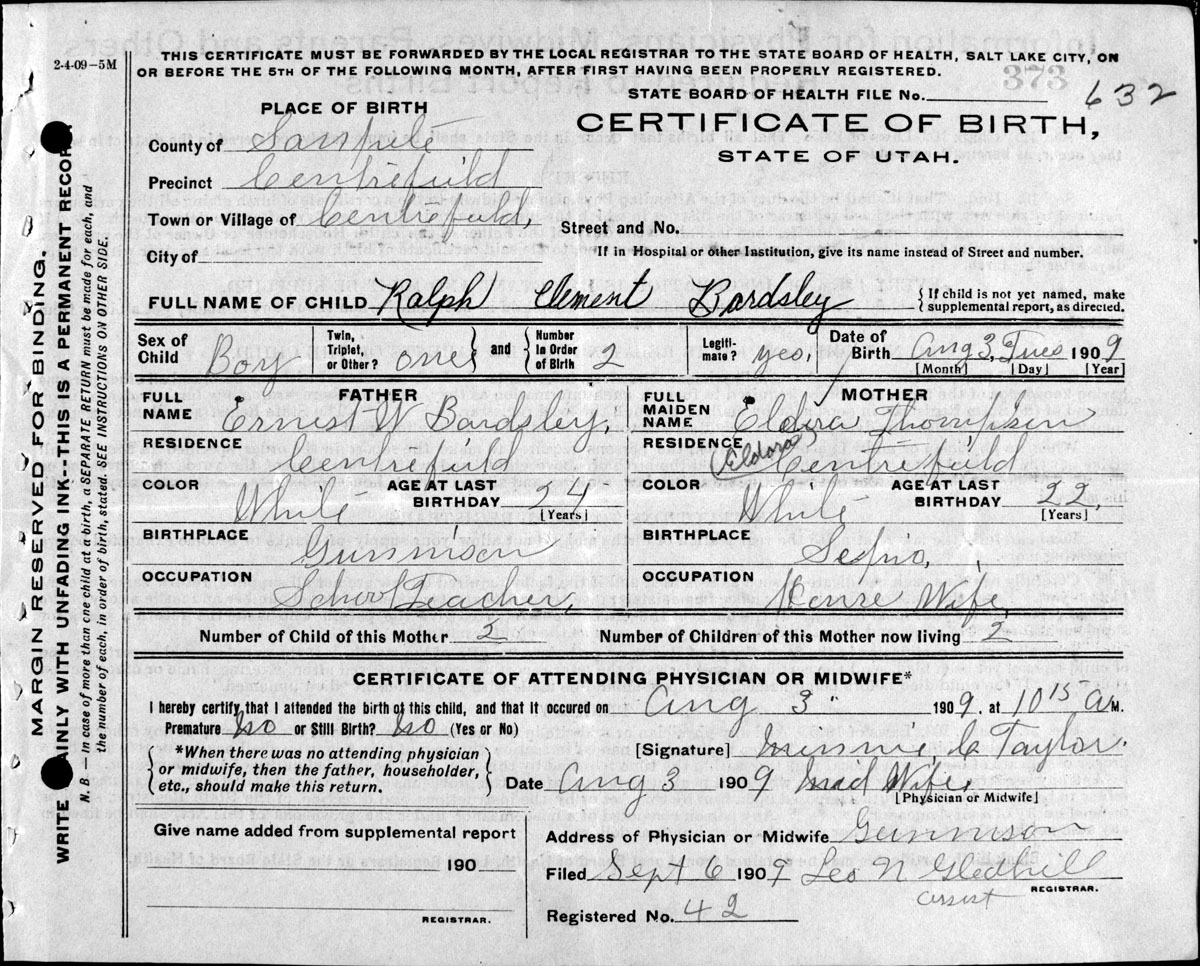 2-4-09-5M
THIS CERTIFICATE MUST BE FORWARDED BY THE LOCAL REGISTRAR TO THE STATE BOARD OF HEALTH, SALT LAKE CITY, ON
OR BEFORE THE 5TH OF THE FOLLOWING MONTH, AFTER FIRST HAVING BEEN PROPERLY REGISTERED.
373
STATE BOARD OF HEALTH FILE No. 632
PLACE OF BIRTH
CERTIFICATE OF BIRTH,
STATE OF UTAH.
County of Sanpete
Precinct Centrefield
Town or Village of Centrefield,
Street and No.
City of
If in Hospital or other Institution, give its name instead of Street and number.
FULL NAME OF CHILD Ralph Clement Bardsley {If child is not yet named, make supplemental report, as directed.
Sex of Child Boy Twin, Triplet, or Other? one and Number In Order of Birth 2 Legiti-mate? yes, Date of Birth Aug 3, Tues 1909
[Month] [Day] [Year]
FATHER MOTHER
FULL NAME Ernest W Bardsley, FULL MAIDEN NAME Eldira Thompson
RESIDENCE Centrefield RESIDENCE (Eldora) Centrefield
COLOR White AGE AT LAST BIRTHDAY 24 [Years] COLOR White AGE AT LAST BIRTHDAY 22, [Years]
BIRTHPLACE Gunnison BIRTHPLACE
OCCUPATION School Teacher, OCCUPATION House Wife,
Number of Child of this Mother 2 Number of Children of this Mother now living 2
CERTIFICATE OF ATTENDING PHYSICIAN OR MIDWIFE*
I hereby certify that I attended the birth of this child, and that it occured on Aug 3 1909. at 10 15 A M.
Premature No or Still Birth? No (Yes or No)
*When there was no attending physician or midwife, then the father, householder, etc., should make this return.
[Signature] Minnie C Taylor.
Date Aug 3 1909 Mid Wife,
[Physician or Midwife]
Give name added from supplemental report
190
REGISTRAR.
Address of Physician or Midwife Gunnison
Filed Sept 6 1909 Leo N Gledhill
REGISTRAR.
Assist
Registered No. 42
MARGIN RESERVED FOR BINDING.
WRITE AINLY WITH UNFADING INK--THIS IS A PERMANENT RECOR
N. B.—In case of more than one child at a birth, a SEPARATE RETURN must be made for each, and
the number of each, in order of birth, stated. SEE INSTRUCTIONS ON OTHER SIDE.